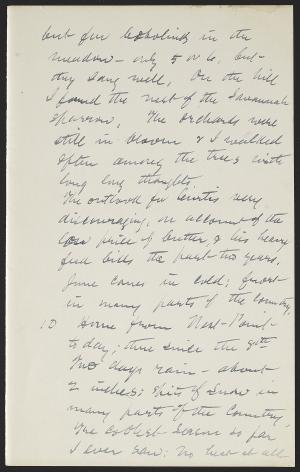 but few bobolinks in the
meadow – only 5 or 6, but
they sang well, On the hill
I found the nest of the Savannah
sparrow, The orchards were
still in bloom & I walked
often among the trees with
long long thoughts.
The outlook for Curtis very
discouraging, on account of the
low price of butter, & his heavy
feed bills the past two years.
June comes in cold; frost
in many parts of the country,
10 Home from West-Point
to day; there since the 8th
Two days rain – about
2 inches; Spits of snow in
many parts of the country,
The coldest season so far
I ever saw; no heat at all